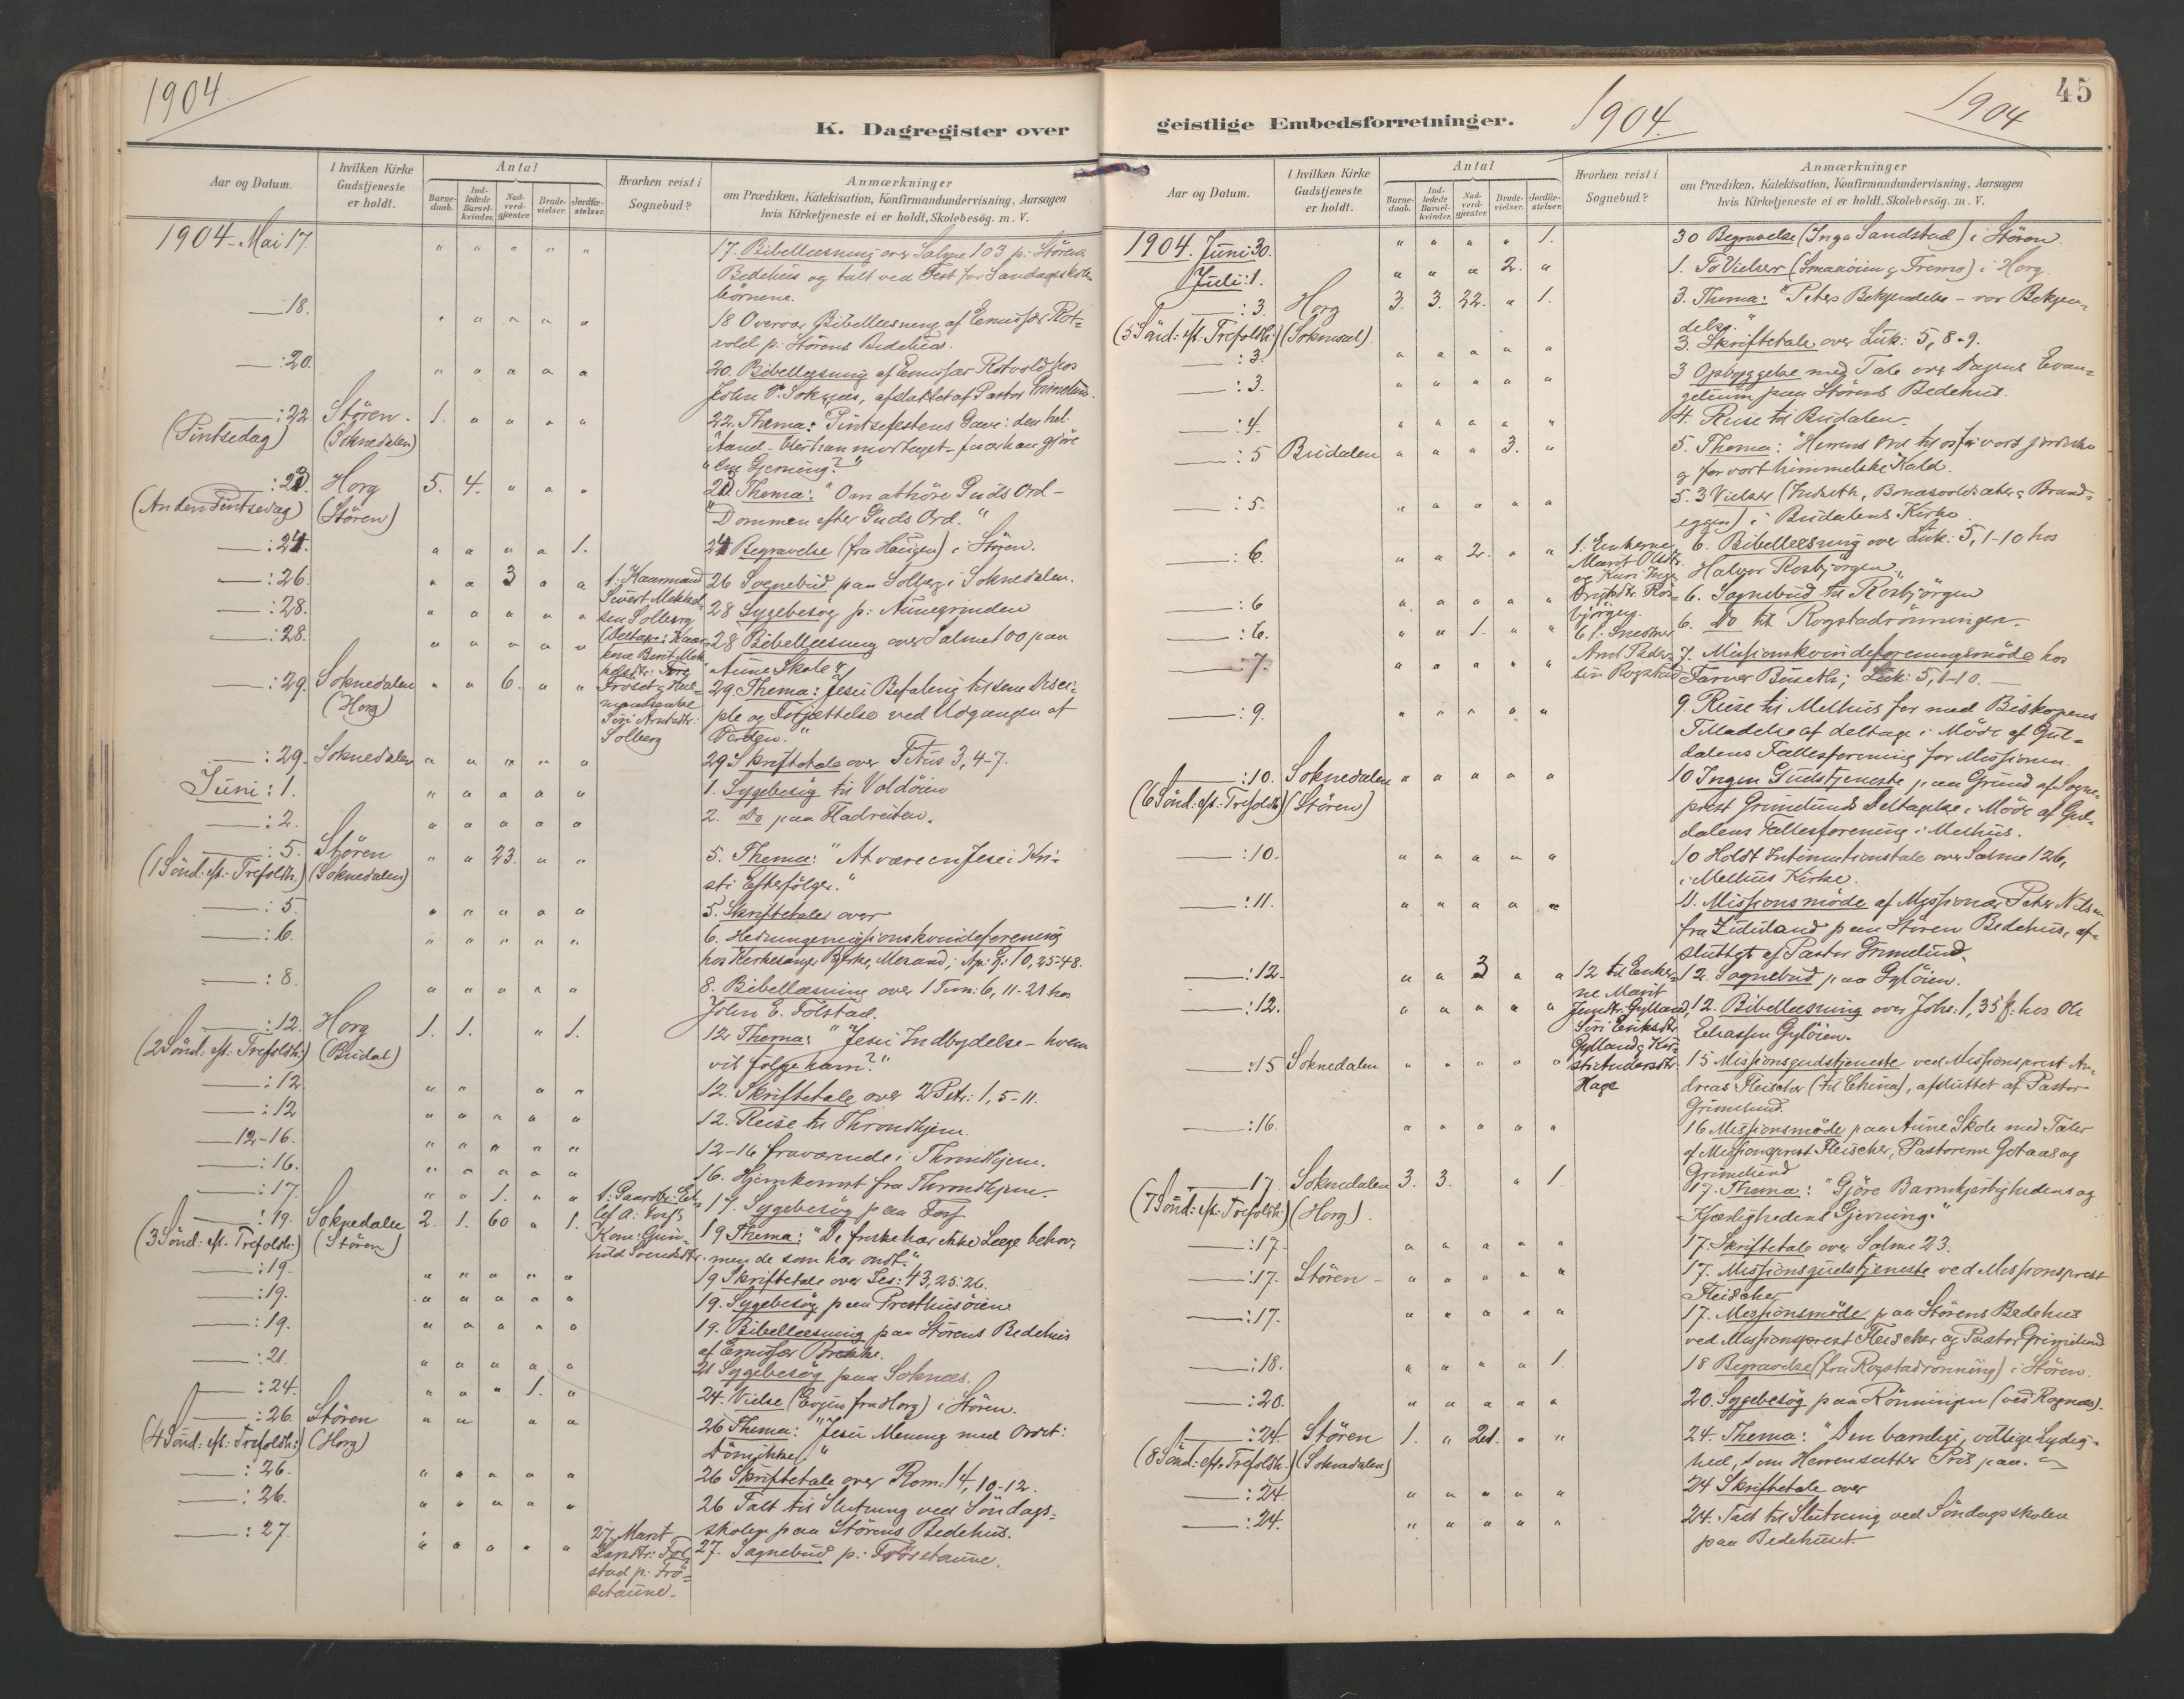 1904
K. Dagregister over
Aar og Datum.
I hvilken Kirke Gudstjeneste er holdt.
Antal
Barnedaab.
Indledede Barselkvinder.
Nadverdgjæster.
Brudevielser.
Jordfæstelser.
Hvorhen reist i Sognebud?
Anmærkninger
om Prædiken, Katekisation, Konfirmandundervisning, Aarsagen
hvis Kirketjeneste ei er holdt, Skolebesög. m. V.
1904 - Mai 17. " " " " " 17. Bibellæsning over Salme 103 p: Störens
Bedehus og talt ved Fest for Søndagsskole-
börnene.
18. " " " " " 18 Overvar Bibellæsning af Emissær Rot-
vold p: Störens Bedehus.
:20. " " " " " 20. Bibellæsning af Emissær Rotvold hos
John P. Soknæs, afsluttet af Pastor Grimelund.
:22 Stören. 1. " " " " 22. Thema: Pintsefestens Gave: den hel.
(Pintsedag) (Soknedalen) Aand - Hvert han modtaget - faar han gjöre
sin Gjerning?"
:23 Horg 5. 4. " " " 23 Thema: "Om at höre Guds Ord -
(Anden Pintsedag) (Stören) Dommen efter Guds Ord."
:24. " " " " 1. 24 Begravelse (fra Haugen) i Stören.
:26. " " 3 " " 1. Kaarmand 26 Sognebud paa Solberg i Soknedalen.
Sivert Mikkel-
:28. " " " " " sen Solberg 28 Sygebesög p: Aunegrinden
:28. " " " " " 28 Bibellæsning over Salme 100 paa
Aune Skole
:29. Soknedalen " " 6. " " 29. Thema: Jesu Befaling til sine Disci-
(Horg) ple og Forjættelse ved Udgangen af
Siri Arntsdtr: Verden."
Solberg
:29. Soknedalen " " " " " 29 Skriftetale over Titus 3, 4-7.
Juni: 1. " " " " " 1. Sygebesög til Voldöien
:2. " " " " " 2. Do paa Fladreiten.
:5. Stören " " 23. " " 5. Thema: "At være en Jesu Kri-
(1 Sönd: eft: Trefoldh:) (Soknedalen) sti Efterfölger."
:5. " " " " " 5. Skriftetale over
:6. " " " " " 6. Hedningemissionskvindeforening
hos Kirkesanger Bjerke, Mosand; Ap: G: 10, 25-48.
:8. " " " " " 8. Bibellæsning over 1 Tim: 6, 11-21 hos
John E. Folstad.
:12. Horg 1. 1. " 1. 12 Thema: "Jesu Indbydelse - hvem
(2 Sönd: eft: Trefoldh:) (Budal) vil fölge ham?"
:12. " " " " 12. Skriftetale over 2 Petr: 1, 5-11.
:12 " " " " " 12. Reise til Throndhjem.
12-16. " " " " " 12-16 fraværende i Throndhjem.
:16. " " " " " 16. Hjemkomst fra Throndhjem.
:17. " " 1. " " 17. Sygebesög paa Fossf
:19. Soknedalen 2. 1. 60 " 1. 19 Thema: "De friske har ikke Læge behov,
(3 Sönd: eft: Trefoldh:) (Stören) men de som har ondt."
:19. " " " " " 19 Skriftetale over Jes: 43, 25-26.
:19. " " " " " 19. Sygebesög paa Presthusöien
:19. " " " " " 19. Bibellæsning paa Störens Bedehus
af Emissær Brekke.
:21. " " " " " 21 Sygebesög paa Soknæs.
:24. " " " 1. " 24. Vielse (Evjen fra Horg) i Stören.
:26. Stören " " " " 26 Thema: "Jesu Mening med Ordet:
(4 Sönd: eft: Trefoldh:) (Horg) Dömikke!"
:26. " " " " " 26 Skriftetale over Rom. 14, 10-12.
:26. " " " " " 26 Talt til Slutning ved Söndags-
skolen paa Störens Bedehus.
:27. " " " " " 27. Marit 27. Sognebud p: Fröset aune.
Larsdtr: Fol-
stad p: Frö-
setaune.
geistlige Embedsforretninger.
1904.
1904
45
Aar og Datum.
I hvilken Kirke Gudstjeneste er holdt.
Antal
Barnedaab.
Indledede Barselkvinder.
Nadverdgjæster.
Brudevielser.
Jordfæstelser.
Hvorhen reist i Sognebud?
Anmærkninger
om Prædiken, Katekisation, Konfirmandundervisning, Aarsagen
hvis Kirketjeneste ei er holdt, Skolebesög. m. V.
1904. Juni 30. " " " " 1. 30 Begravelse (Inga Sandstad) i Stören.
Juli: 1. " " " 2. " 1. To Vielser (Smaaöien & Tremo) i Horg.
:3. Horg 3. 3. 22. " 1. 3. Thema: "Peters Bekjendelse - vor Bekjen-
(5 Sönd: eft: Trefoldh:) (Soknedal). delse."
:3. " " " " " 3. Skriftetale over Luk: 5, 8-9.
:3. " " " " " 3 Opbyggelse med Tale over Dagens Evan-
gelium paa Störens Bedehus.
:4. " " " " " 4. Reise til Budalen.
:5 Budalen " " " 3. " 5. Thema: "Herrens Ord til os for vort jordiske
og for vort himmelske Kald.
:5. " " " " " 5. 3 Vielser (Indseth, Bonæsvoldsæter & Brand-
eggen) i Budalens Kirke
:6. " " 2. " " 1. Enkerne 6. Bibellæsning over Luk: 5, 1-10 hos
Marit Olsdtr. Halvor Rosbjörgen
:6 " " " " " 6. Sognebud til Rosbjörgen
:6. " " 1. " " 6. Do til Rogstadrönningen.
:7. " " " " " 7. Missionskvindeforeningsmöde hos
Farver Buseth; Luk: 5, 1-10.
:9. " " " " " 9. Reise til Melhus for med Biskopens
Tilladelse af deltage i Möde af Gul-
dalens Fællesforening for Missionen.
:10. Soknedalen " " " " " 10 Ingen Gudstjeneste paa Grund af Sogne-
(6 Sönd: eft: Trefoldh:) (Stören) prest Grimelunds Deltagelse i Möde af Gul-
dalens Fællesforening i Melhus.
:10. " " " " " 10 Holdt Intimationstale over Salme 126,
i Melhus Kirke.
:11. " " " " " 11. Missionsmöde af Missionær Peter Nilsen
fra Zululand paa Stören Bedehus, af-
sluttet af Pastor Grimelund.
:12. " " 3 " " 12 til Enker- 12. Sognebud paa Gylöien.
ne Marit
:12. " " " " " 12. Bibellæsning over Joh: 1, 35 ff: hos Ole
Siri Eriksdtr. Eliassen Gylöien.
:15 Soknedalen " " " " " sti Andersdtr. 15 Missionsgudstjeneste ved Missionsprest An-
Hage dreas Fleischer (til China), afsluttet af Pastor
Grimelund.
:16. " " " " " 16 Missionsmöde paa Aune Skole med Taler
af Missionsprest Fleischer, Pastorerne Getaas og
Grimelund
:17. Soknedalen 3. 3. " 1. 17. Thema: "Gjöre Barmhjertighedens og
(7 Sönd: eft: Trefoldh:) (Horg). Kjærlighedens Gjerning."
:17. " " " " " 17. Skriftetale over Salme 23.
:17. Stören - " " " " " 17. Missionsgudstjeneste ved Missionsprest
Fleischer
:17. " " " " " 17. Missionsmöde paa Störens Bedehus
ved Missionsprest Fleischer og Pastor Grimelund
:18. " " " " 1. 18 Begravelse (fra Rogstadrönning) i Stören.
:20. " " " " " 20. Sygebesög paa Rönningen (ved Rognæs).
:24. Stören 1. " 21. " " 24. Thema: "Den barnlige, villige Lydig-
(8 Sönd: eft: Trefoldh:) (Soknedalen) hed, som Herren sætter Pris paa."
:24. " " " " " 24 Skriftetale over
:24. " " " " " 24. Talt til Slutning ved Söndagsskolen
paa Bedehuset.